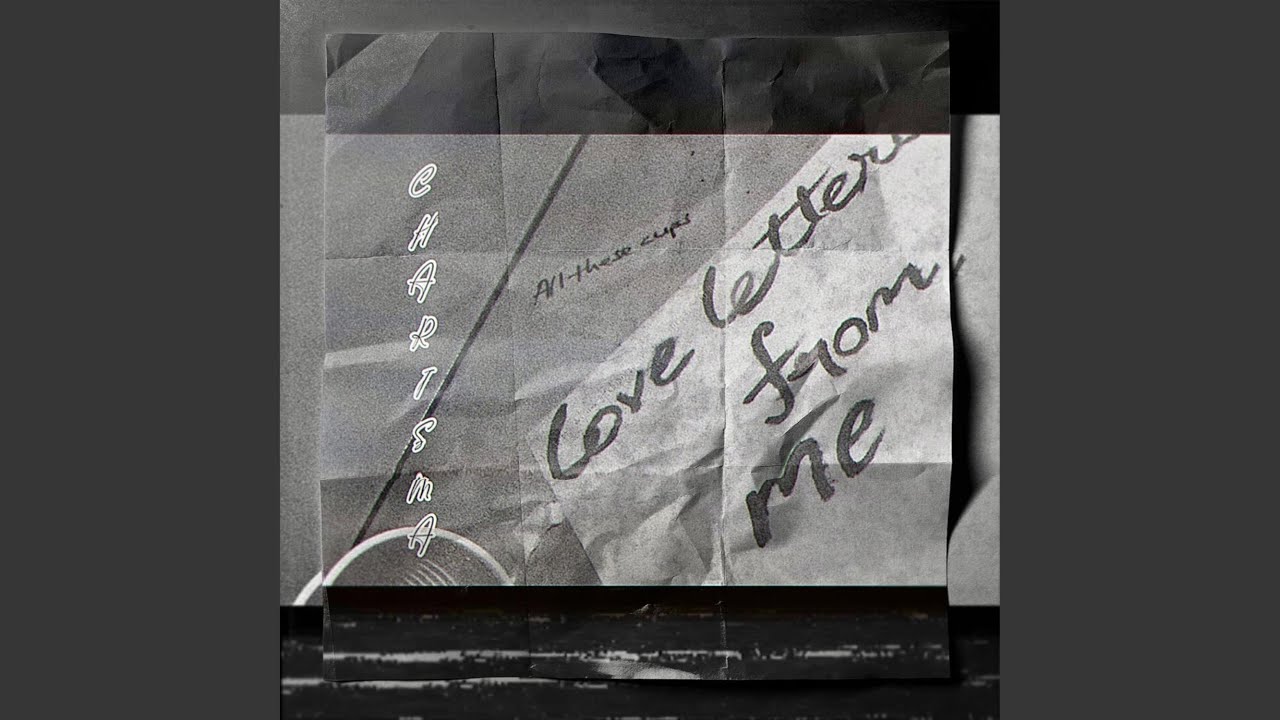 CHARISMA
All these cups
Love letters
from
me